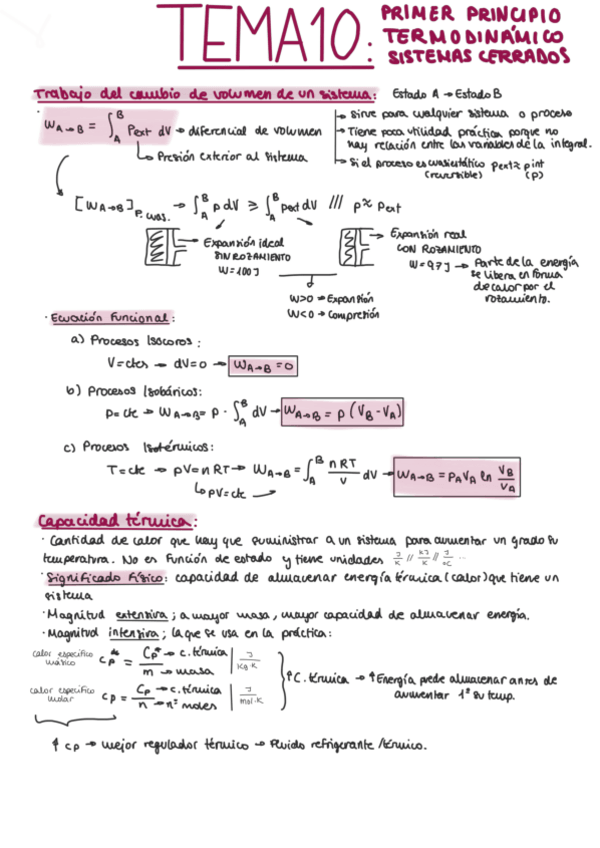 TEMA 10:
PRIMER PRINCIPIO
TERMODINÁMICO
SISTEMAS CERRADOS
Trabajo del cambio de volumen de un sistema: Estado A → Estado B
· W_A→B = ∫_A^B Pext dV → diferencial de volumen
↳ Presión exterior al sistema
→ Sirve para cualquier sistema o proceso
→ Tiene poca utilidad práctica porque no
hay relación entre las variables de la integral.
→ Si el proceso es cuasiestático pext ≈ pint
(reversible) (p)
[W_A→B]_P.cuas. → ∫_A^B p dV ≥ ∫_A^B pext dV /// p ≈ pext
→ Expansión ideal
SIN ROZAMIENTO
W = 100 J
→ Expansión real
CON ROZAMIENTO
W = 97 J → Parte de la energía
se libera en forma
de calor por el
rozamiento.
W>0 → Expansión
W<0 → Compresión
· Ecuación Funcional:
a) Procesos Isócoros:
V=ctes → dV=0 → W_A→B = 0
b) Procesos Isobáricos:
p=cte → W_A→B = p · ∫_A^B dV → W_A→B = p (V_B - V_A)
c) Procesos Isotérmicos:
T=cte → pV=nRT → W_A→B = ∫_A^B nRT/V dV → W_A→B = P_A V_A ln V_B/V_A
↳ pV=cte
Capacidad térmica:
· Cantidad de calor que hay que suministrar a un sistema para aumentar un grado su
temperatura. No es función de estado y tiene unidades J/K // KJ/K // J/ºC ...
· Significado Físico: capacidad de almacenar energía térmica (calor) que tiene un
sistema
· Magnitud extensiva; a mayor masa, mayor capacidad de almacenar energía.
· Magnitud intensiva; la que se usa en la práctica:
calor específico másico cp* = Cp* → c. térmica / m → masa | J/Kg·K
calor específico molar cp = Cp → c. térmica / n → nº moles | J/mol·K
↑ C. térmica → ↑ Energía puede almacenar antes de
aumentar 1º su temp.
↑ cp → mejor regulador térmico → Fluido refrigerante/térmico.